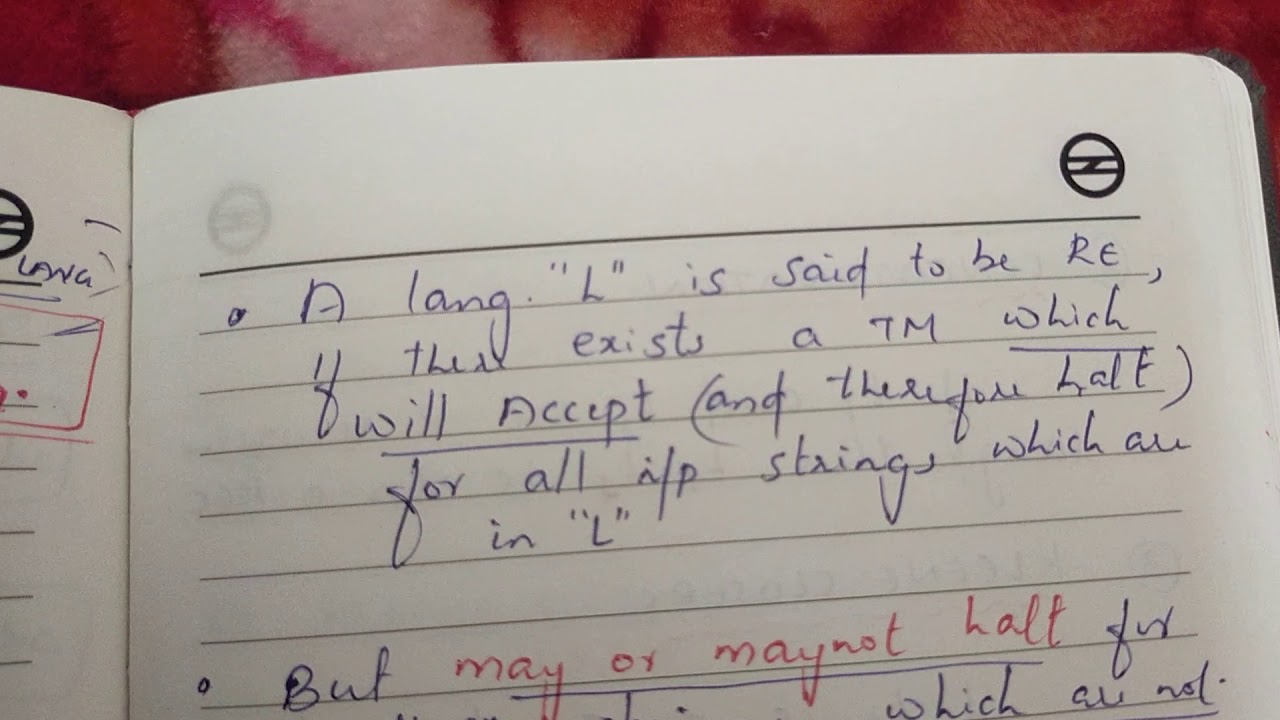 LANG)
• A lang. "L" is said to be RE,
if there exists a TM which
will Accept (and therefore halt)
for all i/p strings which are
in "L"
• But may or maynot halt for
which are not.